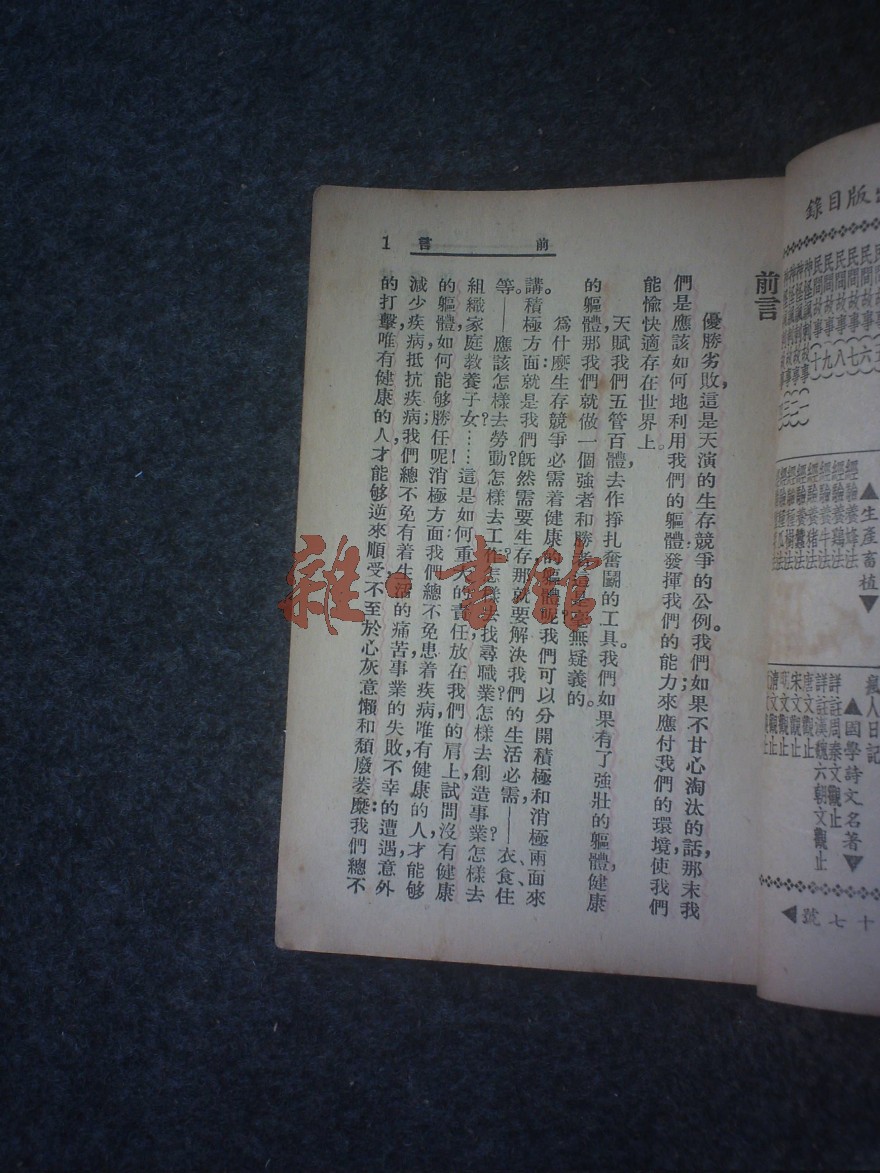 前言
優勝劣敗,這是天演的生存競爭的公例。我們如果不甘心淘汰的話,那末我
們是應該如何地利用我們的軀體,發揮我們的能力,來應付我們的環境;使我們
能愉快適存在世界上。
天賦我們五管百體,去作掙扎奮鬭的工具。我們如果有了強壯的軀體,健康
的軀體,那我們就做一個強者和勝者,這是毫無疑義的。
爲什麼生存競爭必需着健康的軀體呢?我們可以分開積極和消極兩面來
講。積極方面:就是我們旣然需要生存,那就要解決我們的生活必需——衣、食、住
等。——應該怎樣去勞動?怎樣去工作?怎樣去找尋職業?怎樣去創造事業?怎樣去
組織家庭,教養子女?……這是如何重大的責任,放在我們的肩上,試問沒有健康
的軀體,如何能够勝任呢!消極方面:我們總不免患着疾病,唯有健康的人,才能够
減少疾病,抵抗疾病;我們總不免有着生活的痛苦,事業的失敗,不幸的遭遇,意外
的打擊,唯有健康的人,才能够逆來順受,不至於心灰意懶和頹廢萎糜;我們總不
前言 1
版目錄
民間故事(六)
民間故事(七)
民間故事(八)
民間故事(九)
民間故事(十)
▲生產畜植▼
經驗養蜂法
經驗養鷄法
經驗養牛法
經驗養猪法
瘋人日記
▲國學詩文名著▼
詳註漢魏六朝文觀止
詳註周秦文觀止
唐文觀止
宋文觀止
十七號
雜·書館